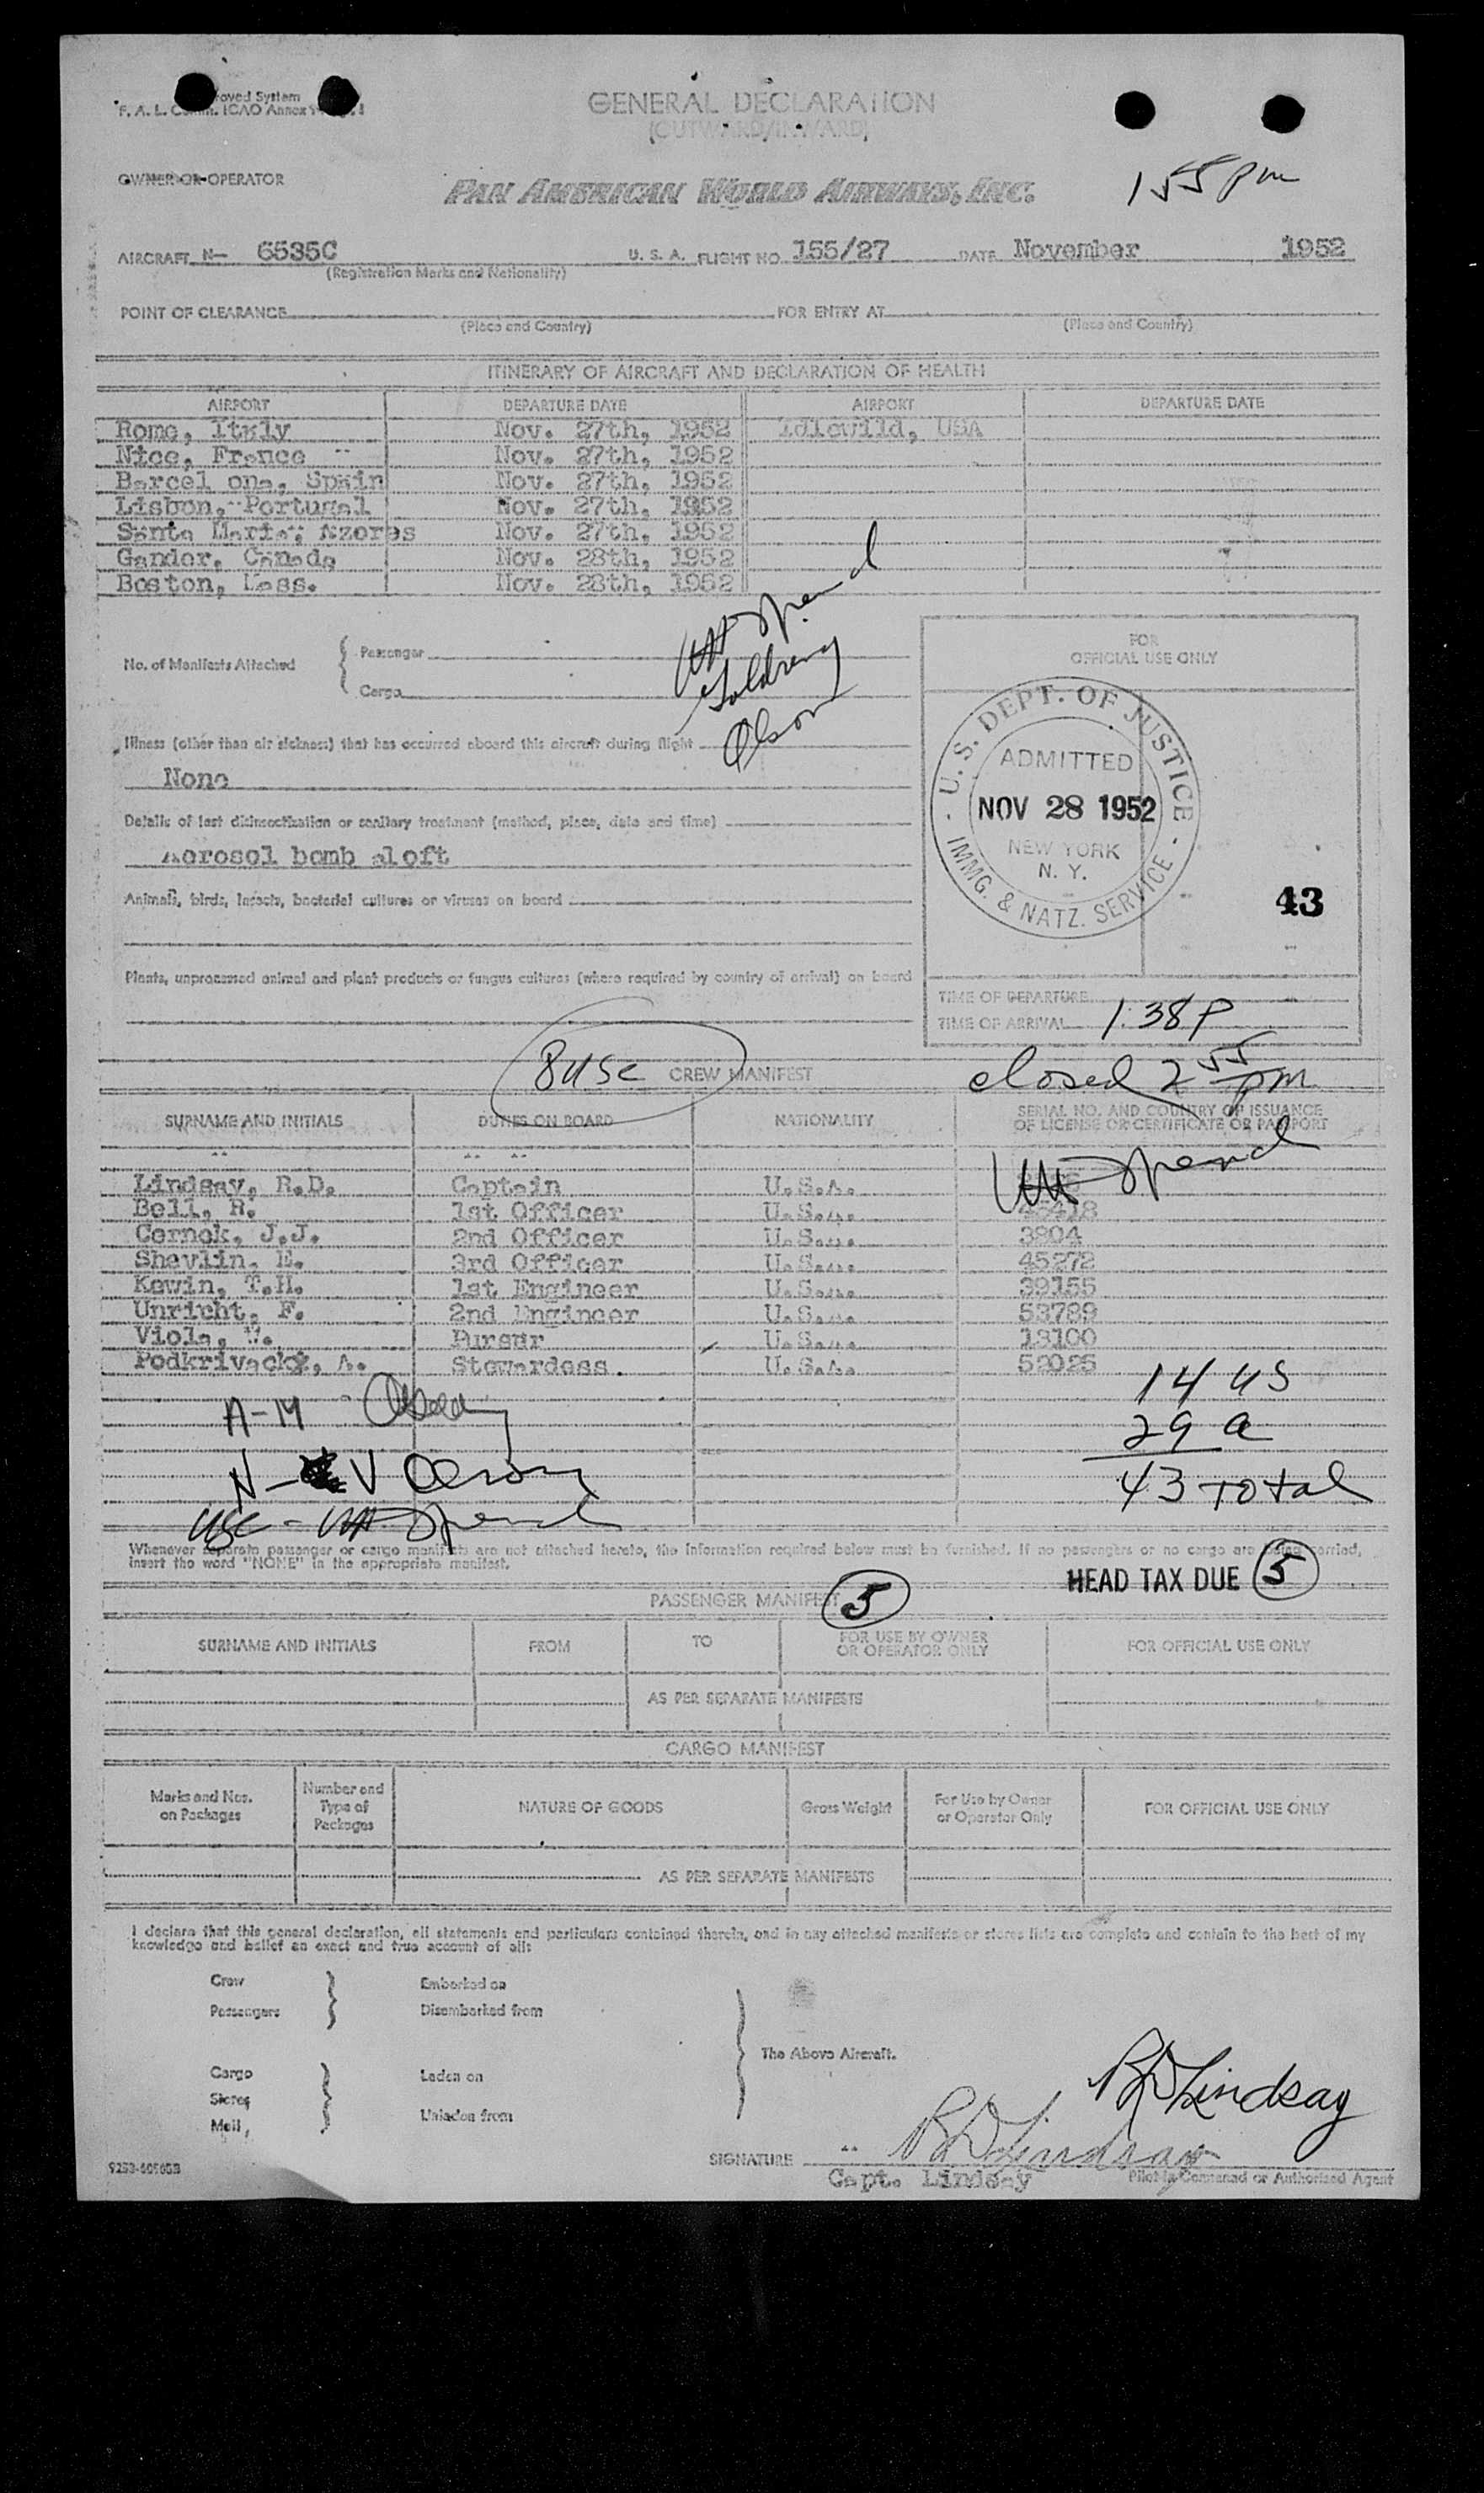 roved System
F. A. L. Comm. ICAO Annex 9
GENERAL DECLARATION
(OUTWARD/INWARD)
OWNER OR OPERATOR
PAN AMERICAN WORLD AIRWAYS, INC.
1 55 pm
AIRCRAFT N- 6535C U. S. A. FLIGHT NO. 155/27 DATE November 1952
(Registration Marks and Nationality)
POINT OF CLEARANCE FOR ENTRY AT
(Place and Country) (Place and Country)
ITINERARY OF AIRCRAFT AND DECLARATION OF HEALTH
AIRPORT DEPARTURE DATE AIRPORT DEPARTURE DATE
Rome, Italy Nov. 27th, 1952 Idlewild, USA
Nice, France Nov. 27th, 1952
Barcel ona, Spain Nov. 27th, 1952
Lisbon, Portugal Nov. 27th, 1952
Santa Maria, Azores Nov. 27th, 1952
Gander, Canada Nov. 28th, 1952
Boston, Mass. Nov. 28th, 1952
Spend
Goldreny
Olson
No. of Manifests Attached
Passenger
Cargo
FOR
OFFICIAL USE ONLY
Illness (other than air sickness) that has occurred aboard this aircraft during flight
None
Details of last disinsectization or sanitary treatment (method, place, date and time)
Aerosol bomb aloft
Animals, birds, insects, bacterial cultures or viruses on board
Plants, unprocessed animal and plant products or fungus cultures (where required by country of arrival) on board
U. S. DEPT. OF JUSTICE
ADMITTED
NOV 28 1952
NEW YORK
N. Y.
IMMG. & NATZ. SERVICE
43
TIME OF DEPARTURE
TIME OF ARRIVAL 1:38 P
closed 2 55 pm
8 usc CREW MANIFEST
SURNAME AND INITIALS DUTIES ON BOARD NATIONALITY SERIAL NO. AND COUNTRY OF ISSUANCE
OF LICENSE OR CERTIFICATE OR PASSPORT
Spend
Lindsay, R.D. Captain U.S.A.
Bell, R. 1st Officer U.S.A. 48418
Cernok, J.J. 2nd Officer U.S.A. 3904
Shevlin, E. 3rd Officer U.S.A. 45272
Kewin, T.H. 1st Engineer U.S.A. 39155
Unricht, F. 2nd Engineer U.S.A. 53789
Viola, Pursur U.S.A. 18100
Podkrivacky, A. Stewardess. U.S.A. 52025
14 US
29 a
43 Total
A-M
N- V Olson
usc - Spend
Whenever separate passenger or cargo manifests are not attached hereto, the information required below must be furnished. If no passengers or no cargo are being carried,
insert the word "NONE" in the appropriate manifest.
HEAD TAX DUE 5
PASSENGER MANIFEST 5
SURNAME AND INITIALS FROM TO FOR USE BY OWNER
OR OPERATOR ONLY FOR OFFICIAL USE ONLY
AS PER SEPARATE MANIFESTS
CARGO MANIFEST
Marks and Nos.
on Packages
Number and
Type of
Packages
NATURE OF GOODS
Gross Weight
For Use by Owner
or Operator Only
FOR OFFICIAL USE ONLY
AS PER SEPARATE MANIFESTS
I declare that this general declaration, all statements and particulars contained therein, and in any attached manifests or stores lists are complete and contain to the best of my
knowledge and belief an exact and true account of all:
Crew Embarked on
Passengers Disembarked from
The Above Aircraft.
Cargo Laden on
Stores
Mail, Unladen from
RD Lindsay
SIGNATURE RD Lindsay
Capt. Lindsay Pilot in Command or Authorised Agent